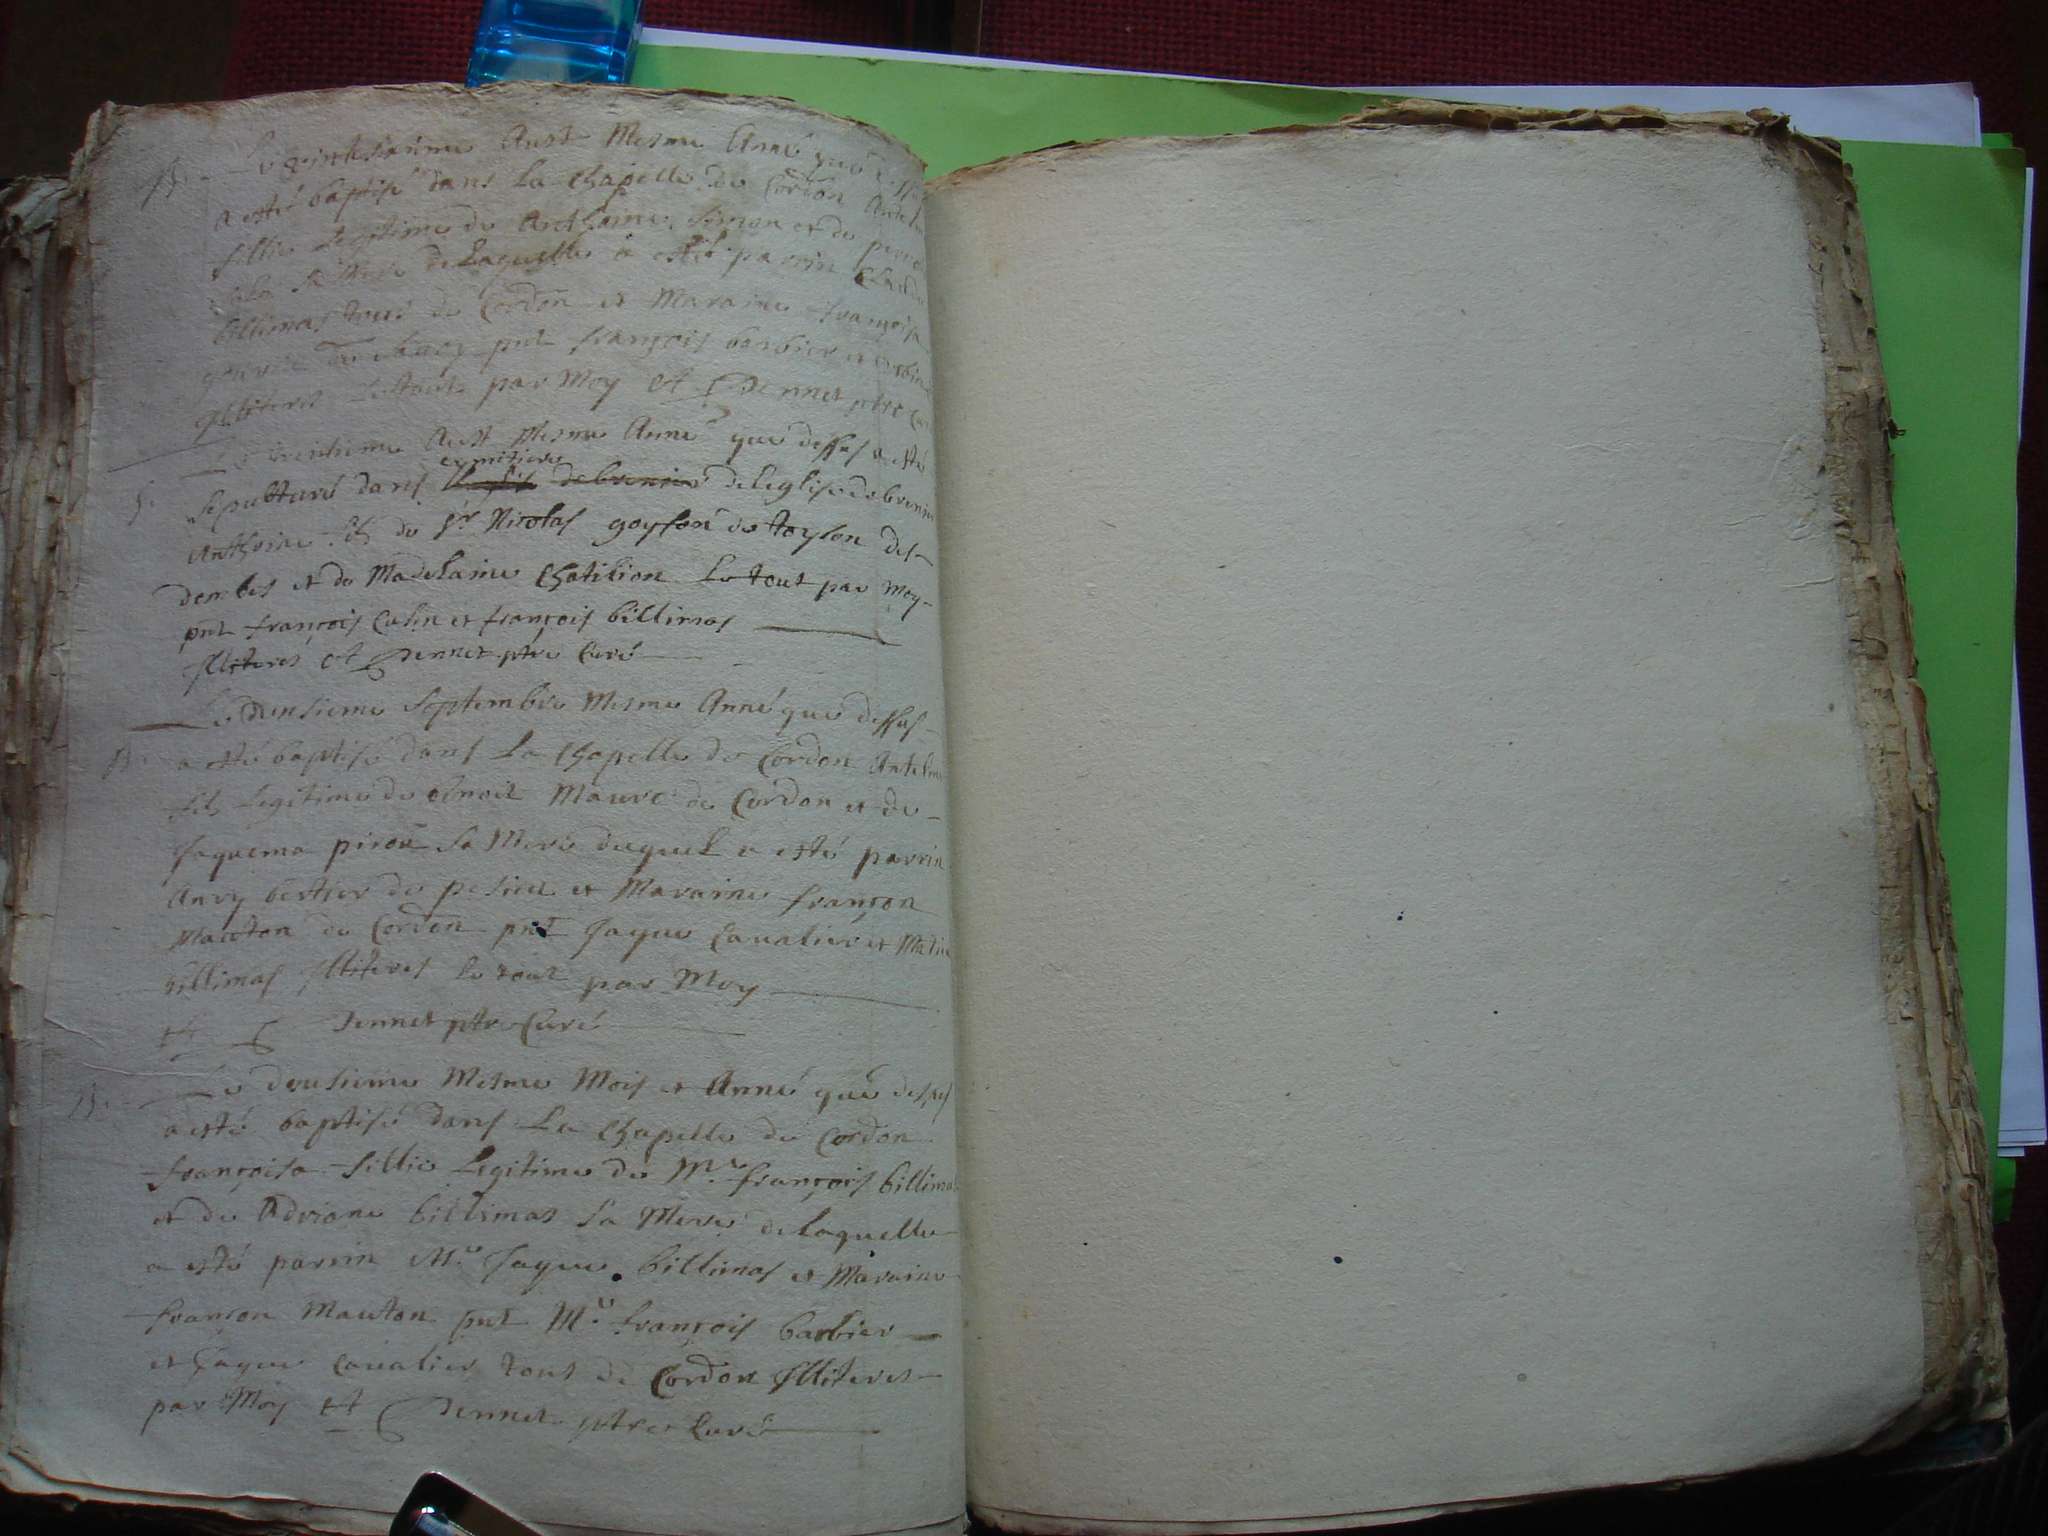 B. Le Aust Mesme Anné que
a esté baptisé dans La Chapelle de Cordon
fillie Legitime de Anthoine Simon et de
sa Mere de Laquelle a esté parrin Claude
billimas tous de Cordon et Maraine françoise
pnt françois barbier et
Illiteres Le tout par Moy Et Jennet ptre Curé
Le Aust Mesme Anné que dessus a esté
cemitiere
S. Sepulturé dans de leglise de brenier
Anthoine fils de Sr Nicolas goyson de des
dombes et de Madelaine Chatilion Le tout par Moy
pnt françois Culin et françois billimas
Illiteres Et Jennet ptre Curé
Le deusieme Septembre Mesme Anné que dessus
B. a esté baptisé dans La Chapelle de Cordon Antelme
fils Legitime de benoit Maure de Cordon et de
Jaquema piron Sa Mere duquel a esté parrin
Anry bertier de pesieu et Maraine françon
Mauton de Cordon pnt Jaque Caualier et
billimas Illiteres Le tout par Moy
Et Jennet ptre Curé
B. Le deusieme Mesme Mois et Anné que dessus
a esté baptisé dans La Chapelle de Cordon
françoise fillie Legitime de Mre françois billimas
et de Adriane billimas Sa Mere de Laquelle
a esté parrin Me Jaque billimas et Maraine
françon Mauton pnt Me françois barbier
et Jaque Caualier tous de Cordon Illiteres
par Moy Et Jennet ptre Curé